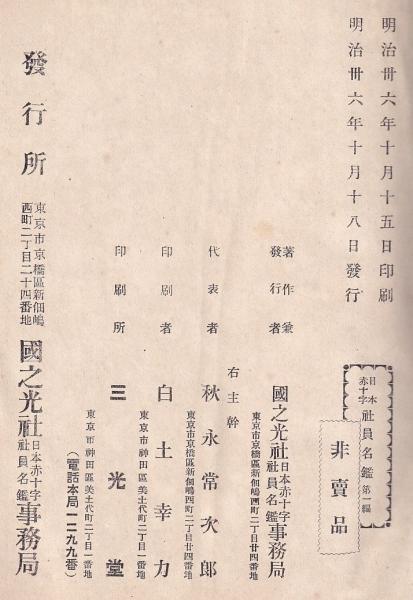 明治卅六年十月十五日印刷
明治卅六年十月十八日發行
日本赤十字社員名鑑第一編
非賣品
著作兼發行者
國之光社日本赤十字社員名鑑事務局
東京市京橋區新佃嶋西町二丁目廿四番地
右主幹
代表者
秋永常次郎
東京市京橋區新佃嶋西町二丁目廿四番地
印刷者
白土幸力
東京市神田區美土代町二丁目一番地
印刷所
三光堂
東京市神田區美土代町二丁目一番地
(電話本局一二九九番)
發行所
東京市京橋區新佃嶋西町二丁目二十四番地
國之光社日本赤十字社員名鑑事務局